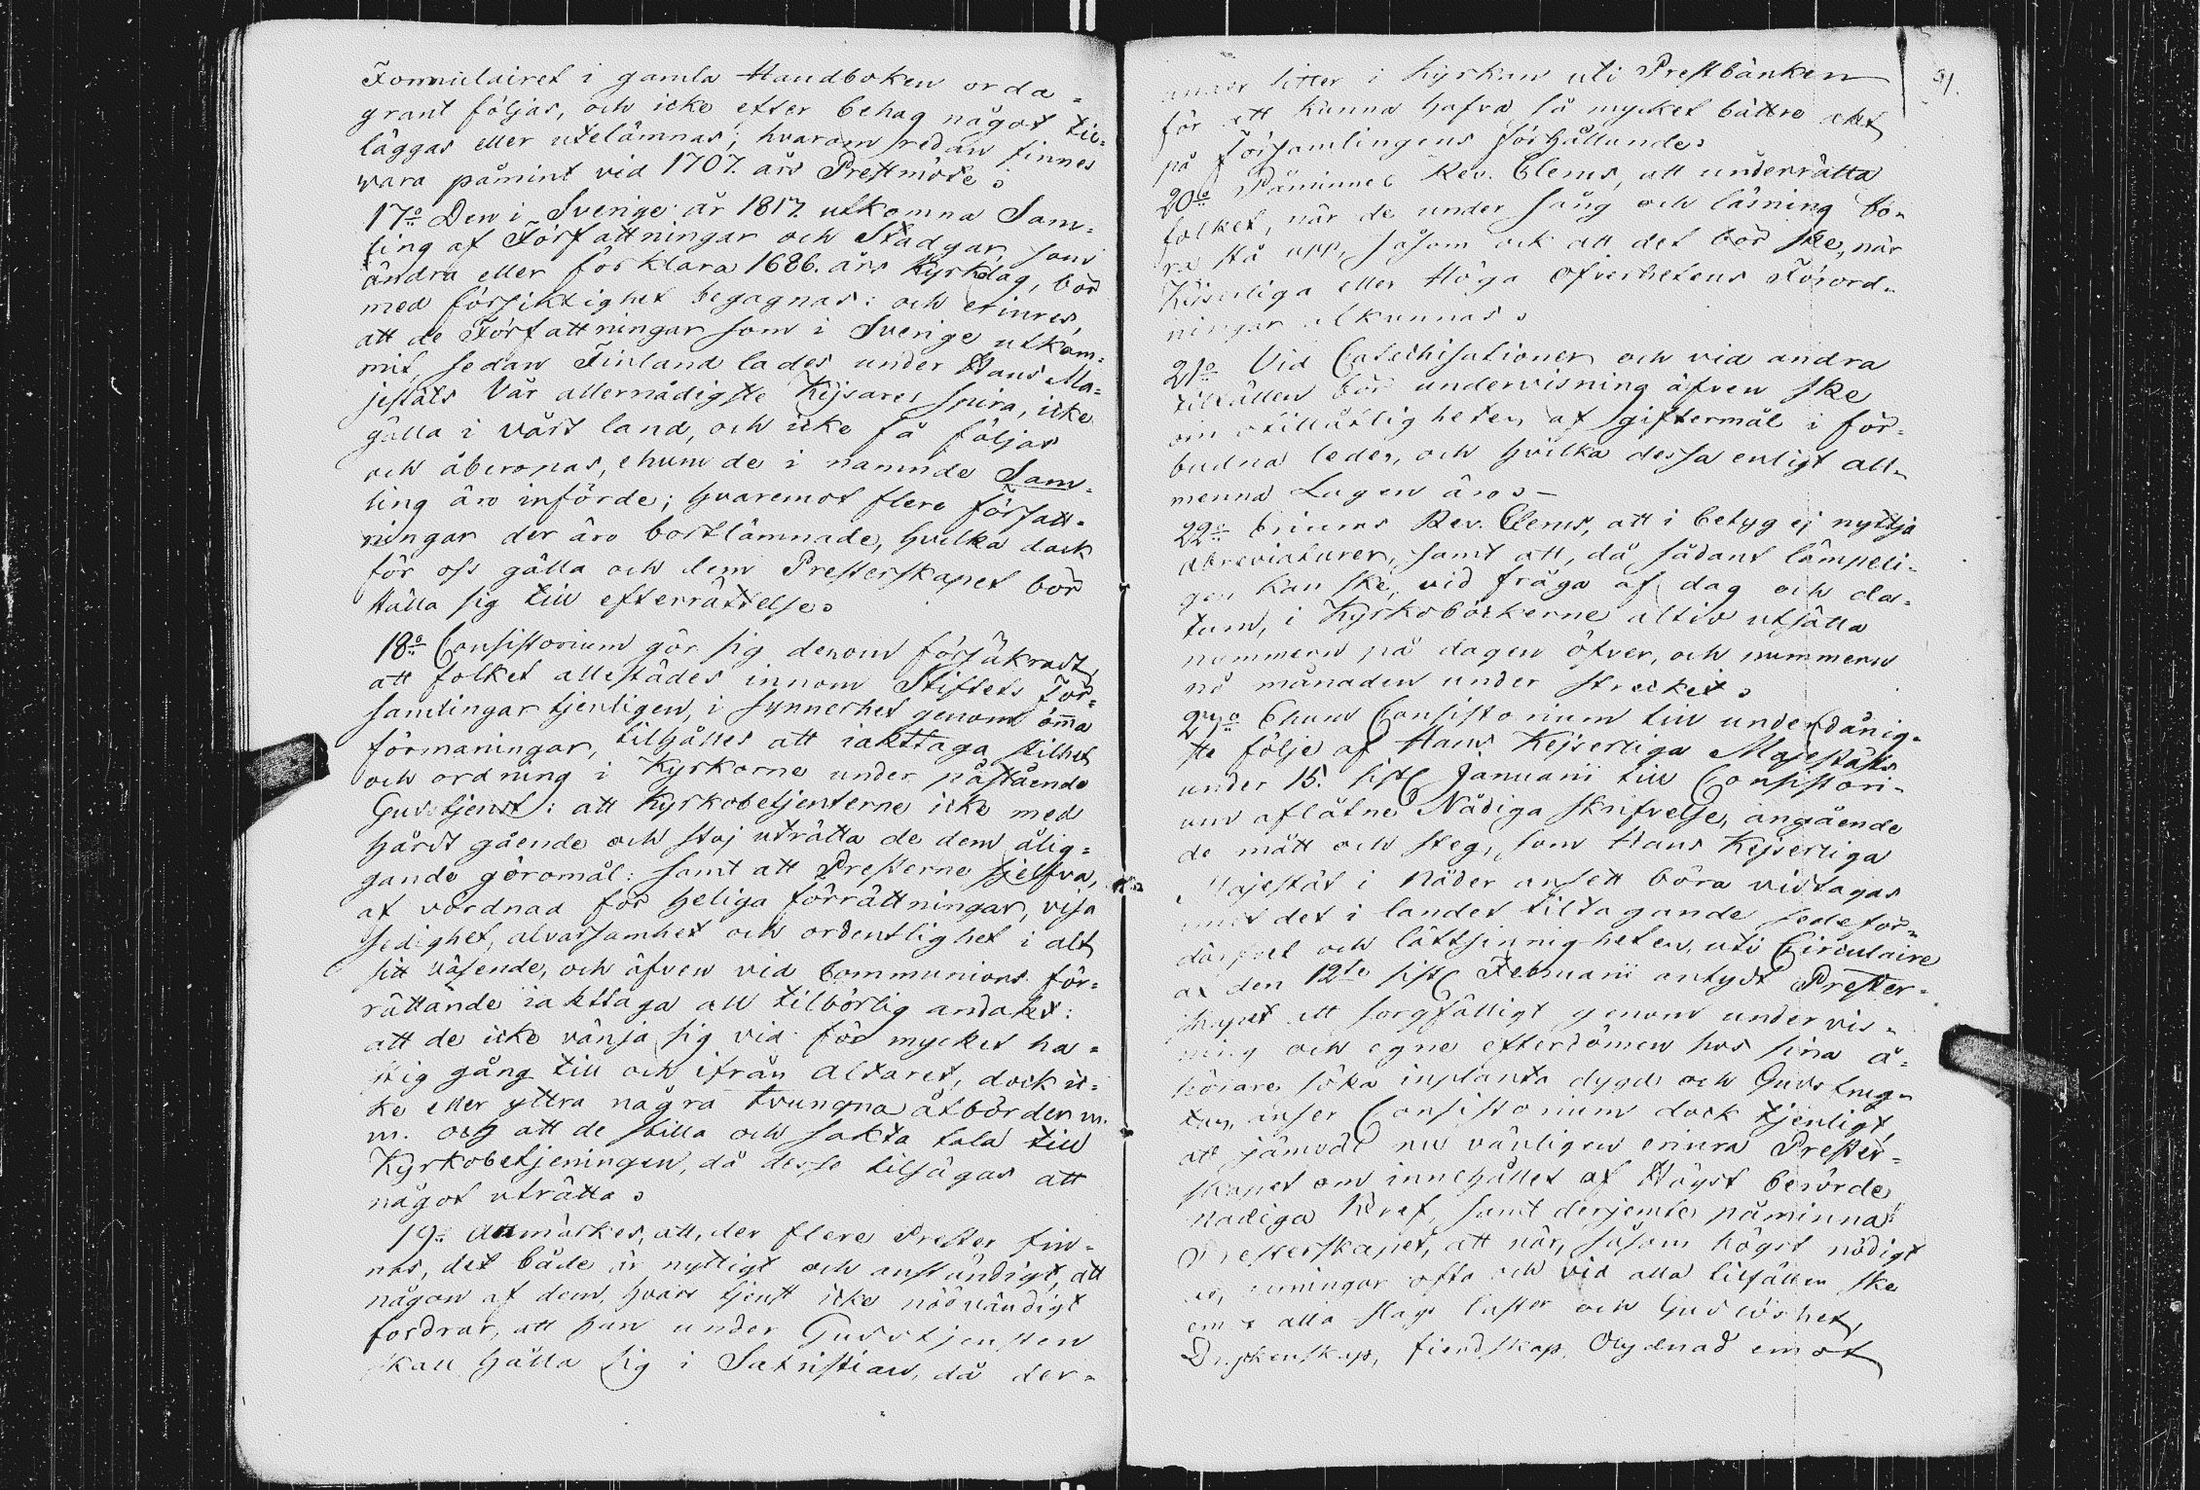 Formulairet i gamla Handboken orda=
grant följas, och icke efter behag något til=
läggas eller utelämnas; hvarom redan finnes
vara påmint vid 1707. års Prestmöte.
17:o Den i Sverige år 1817. utkomna Sam=
ling af Författningar och Stadgar, som
ändra eller förklara 1686. års Kyrkolag, bör
med försiktighet begagnas: och erinres,
att de Författningar som i Sverige utkom=
mit, sedan Finland lades under Hans Ma=
jestäts Vår allernådigste Kejsares spira, icke
gälla i vårt land, och icke få följas
och åberopas, ehuru de i namnde Sam=
ling äro införde; hvaremot flere författ=
ningar der äro bortlämnade, hvilka dock
för oss gälla och dem Presterskapet bör
ställa sig till efterrättelse.
18:o Consistorium gör sig derom försäkradt,
att folket allestädes innom Stiftets För=
samlingar tjenligen, i synnerhet genom ömma
förmaningar, tilhålles att iakttaga stilhet
och ordning i Kyrkorne under påstående
Gudstjenst: att Kyrkobetjenterne icke med
hårdt gående och stoj uträtta de dem ålig=
gande göromål: samt att Presterne sjelfva,
af vördnad för heliga förrättningar, visa
sedighet, alvarsamhet och ordentlighet i alt
sitt väsende, och äfven vid Communions för=
rättande iakttaga all tilbörlig andakt:
att de icke vänja sig vid för mycket ha=
stig gång till och ifrån Altaret, dock ic=
ke eller yttra några tvungna åtbörder m.
m. och att de stilla och sakta tala till
Kyrkobetjeningen, då desse tilsägas att
något uträtta.
19:o Anmärkes, att, der flere Prester fin=
nas, det både är nyttigt och anständigt, att
någon af dem, hvars tjenst icke nödvändigt
fordrar, att han under Gudstjensten
skall hålla sig i Sakristian, då der=
91.
sitter i Kyrkan uti Prestbänken
för att kunna hafva så mycket bättre akt
på Församlingens förhållande.
20:o Påminnes Rev. Clerus, att underrätta
folket, när de under sång och läsning bö=
ra stå upp, såsom ock att det bör ske, när
Kejserliga eller Höga Öfverhetens Förord=
ningar alkunnas.
21:o Vid Catechisationer och vid andra
tilfällen bör undervisning äfven ske
om otillåtligheten af giftermål i för=
budna leder, och hvilka dessa enligt all=
menna Lagen äro.
22:o Erinras Rev. Clerus, att i betyg ej nyttja
abreviaturer, samt att, då sådant lämpeli=
gen kan ske, vid fråga af dag och da=
tum, i Kyrkoböckerne altid utsätta
nummern på dagen öfver, och nummern
på månaden under strecket.
Ehuru Consistorium till underdånig=
ste följe af Hans Kejserliga Majestäts
under 15. sistl Januarii till Consistori=
um aflåtne Nådiga skrifvelse, angående
de mått och steg, som Hans Kejserliga
Majestät i Nåder ansett böra vidtagas
mot det i landet tiltagande sedeför=
därfvet och lättsinnigheten, uti Circulaire
af den 12:te sistl Februarii antydt Prester=
skapet att sorgfälligt genom undervis=
ning och egne efterdömen hos sina å=
hörare söka inplanta dygd och Gudsfrug=
tan, anser Consistorium dock tjenligt,
att jämväl nu vänligen erinra Prester=
skapet om innehållet af Högst berörde
Nådiga Bref, samt derjemte påminna
Presterskapet, att när, såsom högst nödigt
varningar ofta och vid alla tilfällen ske
emot alla slags laster och Gudlöshet,
Dryckenskap, fiendskap, Olydnad emot